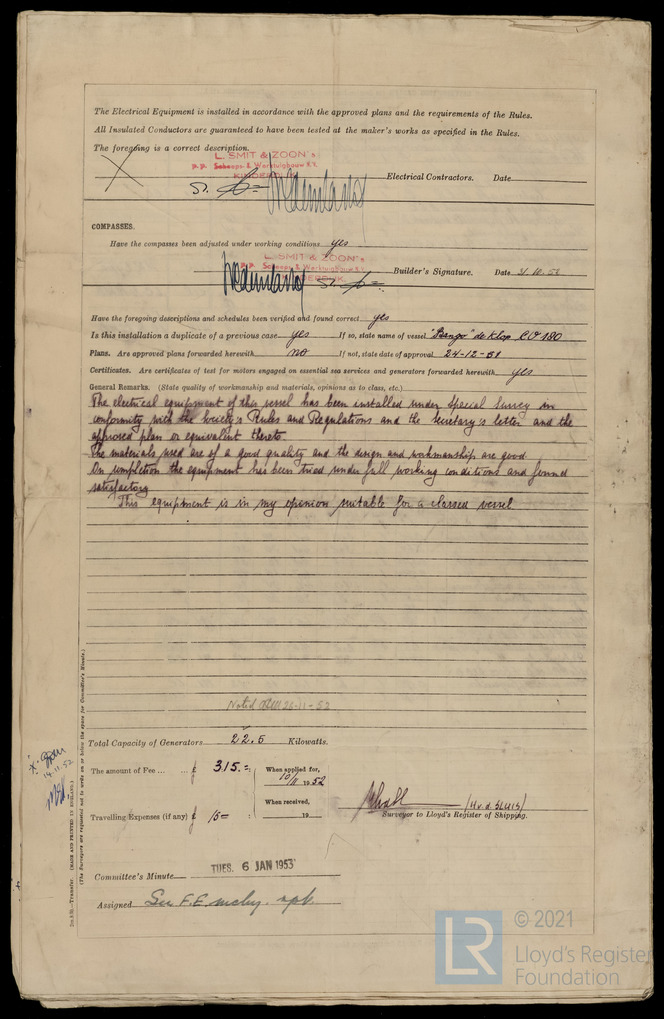 The Electrical Equipment is installed in accordance with the approved plans and the requirements of the Rules.
All Insulated Conductors are guaranteed to have been tested at the maker's works as specified in the Rules.
The foregoing is a correct description.
L. SMIT & ZOON's
p.p. Scheeps- & Werktuigbouw N.V.
KINDERDIJK
Electrical Contractors. Date
COMPASSES.
Have the compasses been adjusted under working conditions yes
L. SMIT & ZOON's
p.p. Scheeps- & Werktuigbouw N.V.
KINDERDIJK
Builder's Signature. Date 31.10.52
Have the foregoing descriptions and schedules been verified and found correct yes
Is this installation a duplicate of a previous case yes If so, state name of vessel "Bengo" de Klop CO 180
Plans. Are approved plans forwarded herewith no If not, state date of approval 24-12-51
Certificates. Are certificates of test for motors engaged on essential sea services and generators forwarded herewith yes
General Remarks. (State quality of workmanship and materials, opinions as to class, etc.)
The electrical equipment of this vessel has been installed under Special Survey in
conformity with the Society's Rules and Regulations and the Secretary's letter and the
approved plan or equivalent thereto
The materials used are of a good quality and the design and workmanship are good
On completion the equipment has been tried under full working conditions and found
satisfactory
This equipment is in my opinion suitable for a classed vessel
Noted 26-11-52
Total Capacity of Generators 22.5 Kilowatts.
The amount of Fee ... ... £ 315.= When applied for,
10/11 1952
When received,
Travelling Expenses (if any) £ 15= 19
(H.v.d. SLUIS)
Surveyor to Lloyd's Register of Shipping.
14.11.52
Committee's Minute TUES. 6 JAN 1953
Assigned See F.E. mchy. rpt.
(MADE AND PRINTED IN ENGLAND.)
(The Surveyors are requested not to write on or below the space for Committee's Minute.)
LR
© 2021
Lloyd's Register
Foundation